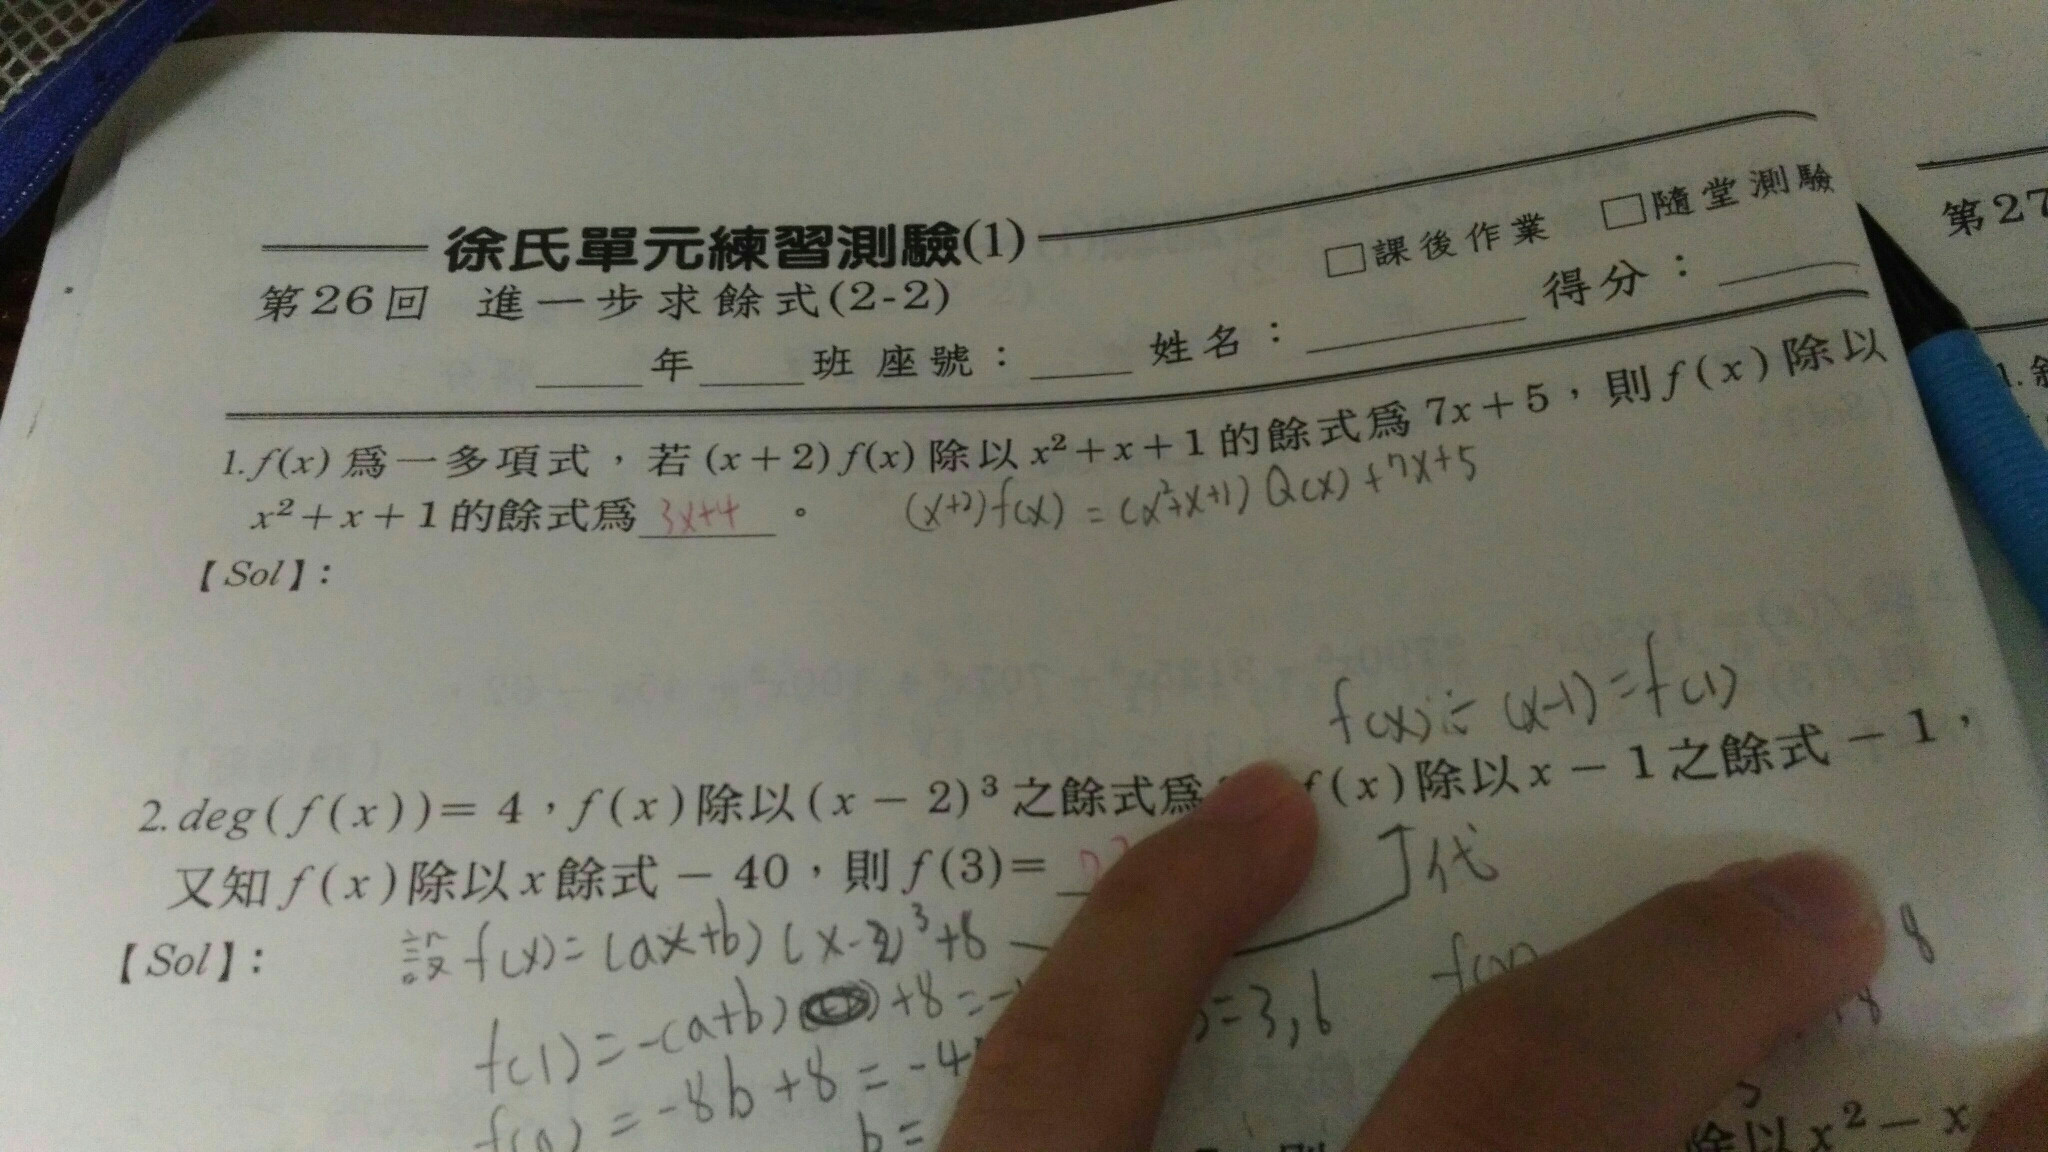 徐氏單元練習測驗(1)
□課後作業 □隨堂測驗
第27
第26回 進一步求餘式(2-2)
得分：
年 班 座號： 姓名：
1.f(x)爲一多項式，若(x+2)f(x)除以x²+x+1的餘式爲7x+5，則f(x)除以
x²+x+1的餘式爲 3x+4 。
(x+2)f(x)=(x²+x+1)Q(x)+7x+5
【Sol】：
f(x)÷(x-1)=f(1)
2.deg(f(x))=4，f(x)除以(x-2)³之餘式爲 f(x)除以x-1之餘式-1，
又知f(x)除以x餘式-40，則f(3)=
代
【Sol】：
設f(x)=(ax+b)(x-2)³+8
f(1)=-(a+b)+8=-
=3,6
8
=-8b+8=-4
b=
除以x²-x